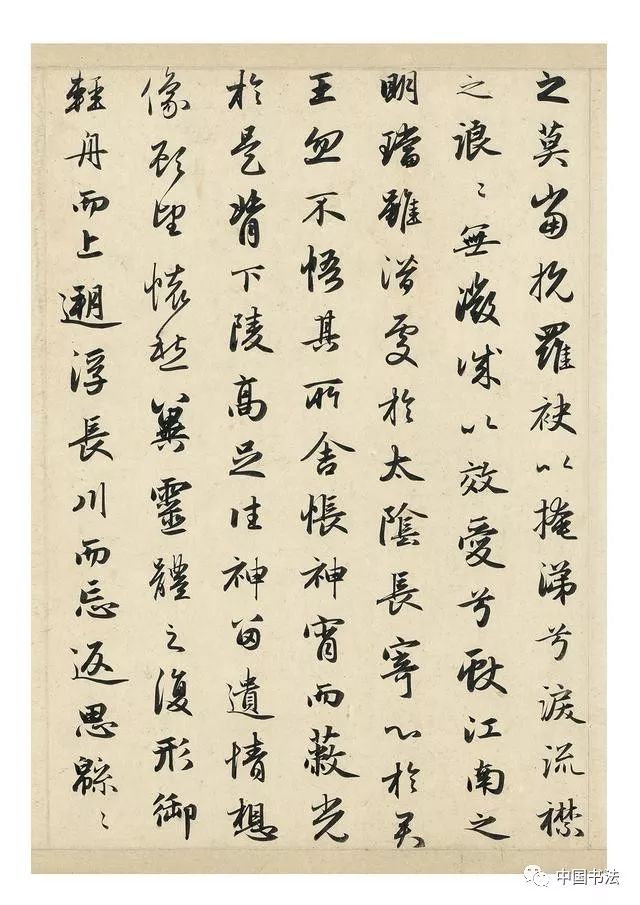 之莫當抗羅袂以掩涕兮淚流襟
之浪〻無微誠以效愛兮獻江南之
明璫雖潛處於太陰長寄心於君
王忽不悟其所舍悵神宵而蔽光
於是背下陵高足往神留遺情想
像顧望懷愁冀靈體之復形御
輕舟而上遡浮長川而忘返思緜〻
中国书法